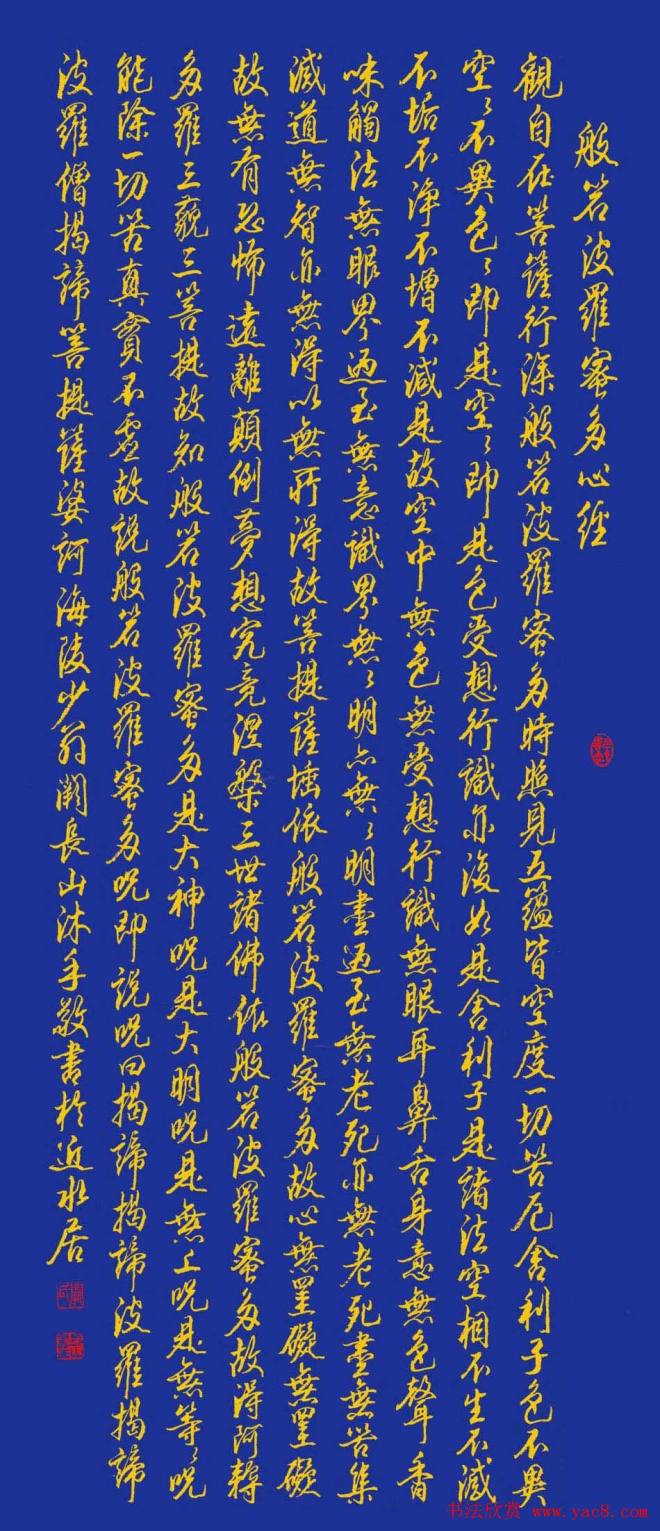 般若波羅蜜多心經
觀自在菩薩行深般若波羅蜜多時照見五蘊皆空度一切苦厄舍利子色不異
空〻不異色〻即是空〻即是色受想行識亦復如是舍利子是諸法空相不生不滅
不垢不淨不增不減是故空中無色無受想行識無眼耳鼻舌身意無色聲香
味觸法無眼界迺至無意識界無〻明亦無〻明盡迺至無老死亦無老死盡無苦集
滅道無智亦無得以無所得故菩提薩埵依般若波羅蜜多故心無罣礙無罣礙
故無有恐怖遠離顛倒夢想究竟涅槃三世諸佛依般若波羅蜜多故得阿耨
多羅三藐三菩提故知般若波羅蜜多是大神咒是大明咒是無上咒是無等〻咒
能除一切苦真實不虛故說般若波羅蜜多咒即說咒曰揭諦揭諦波羅揭諦
波羅僧揭諦菩提薩婆訶海陵少翁闞長山沐手敬書於近水居
书法欣赏 www.yac8.com